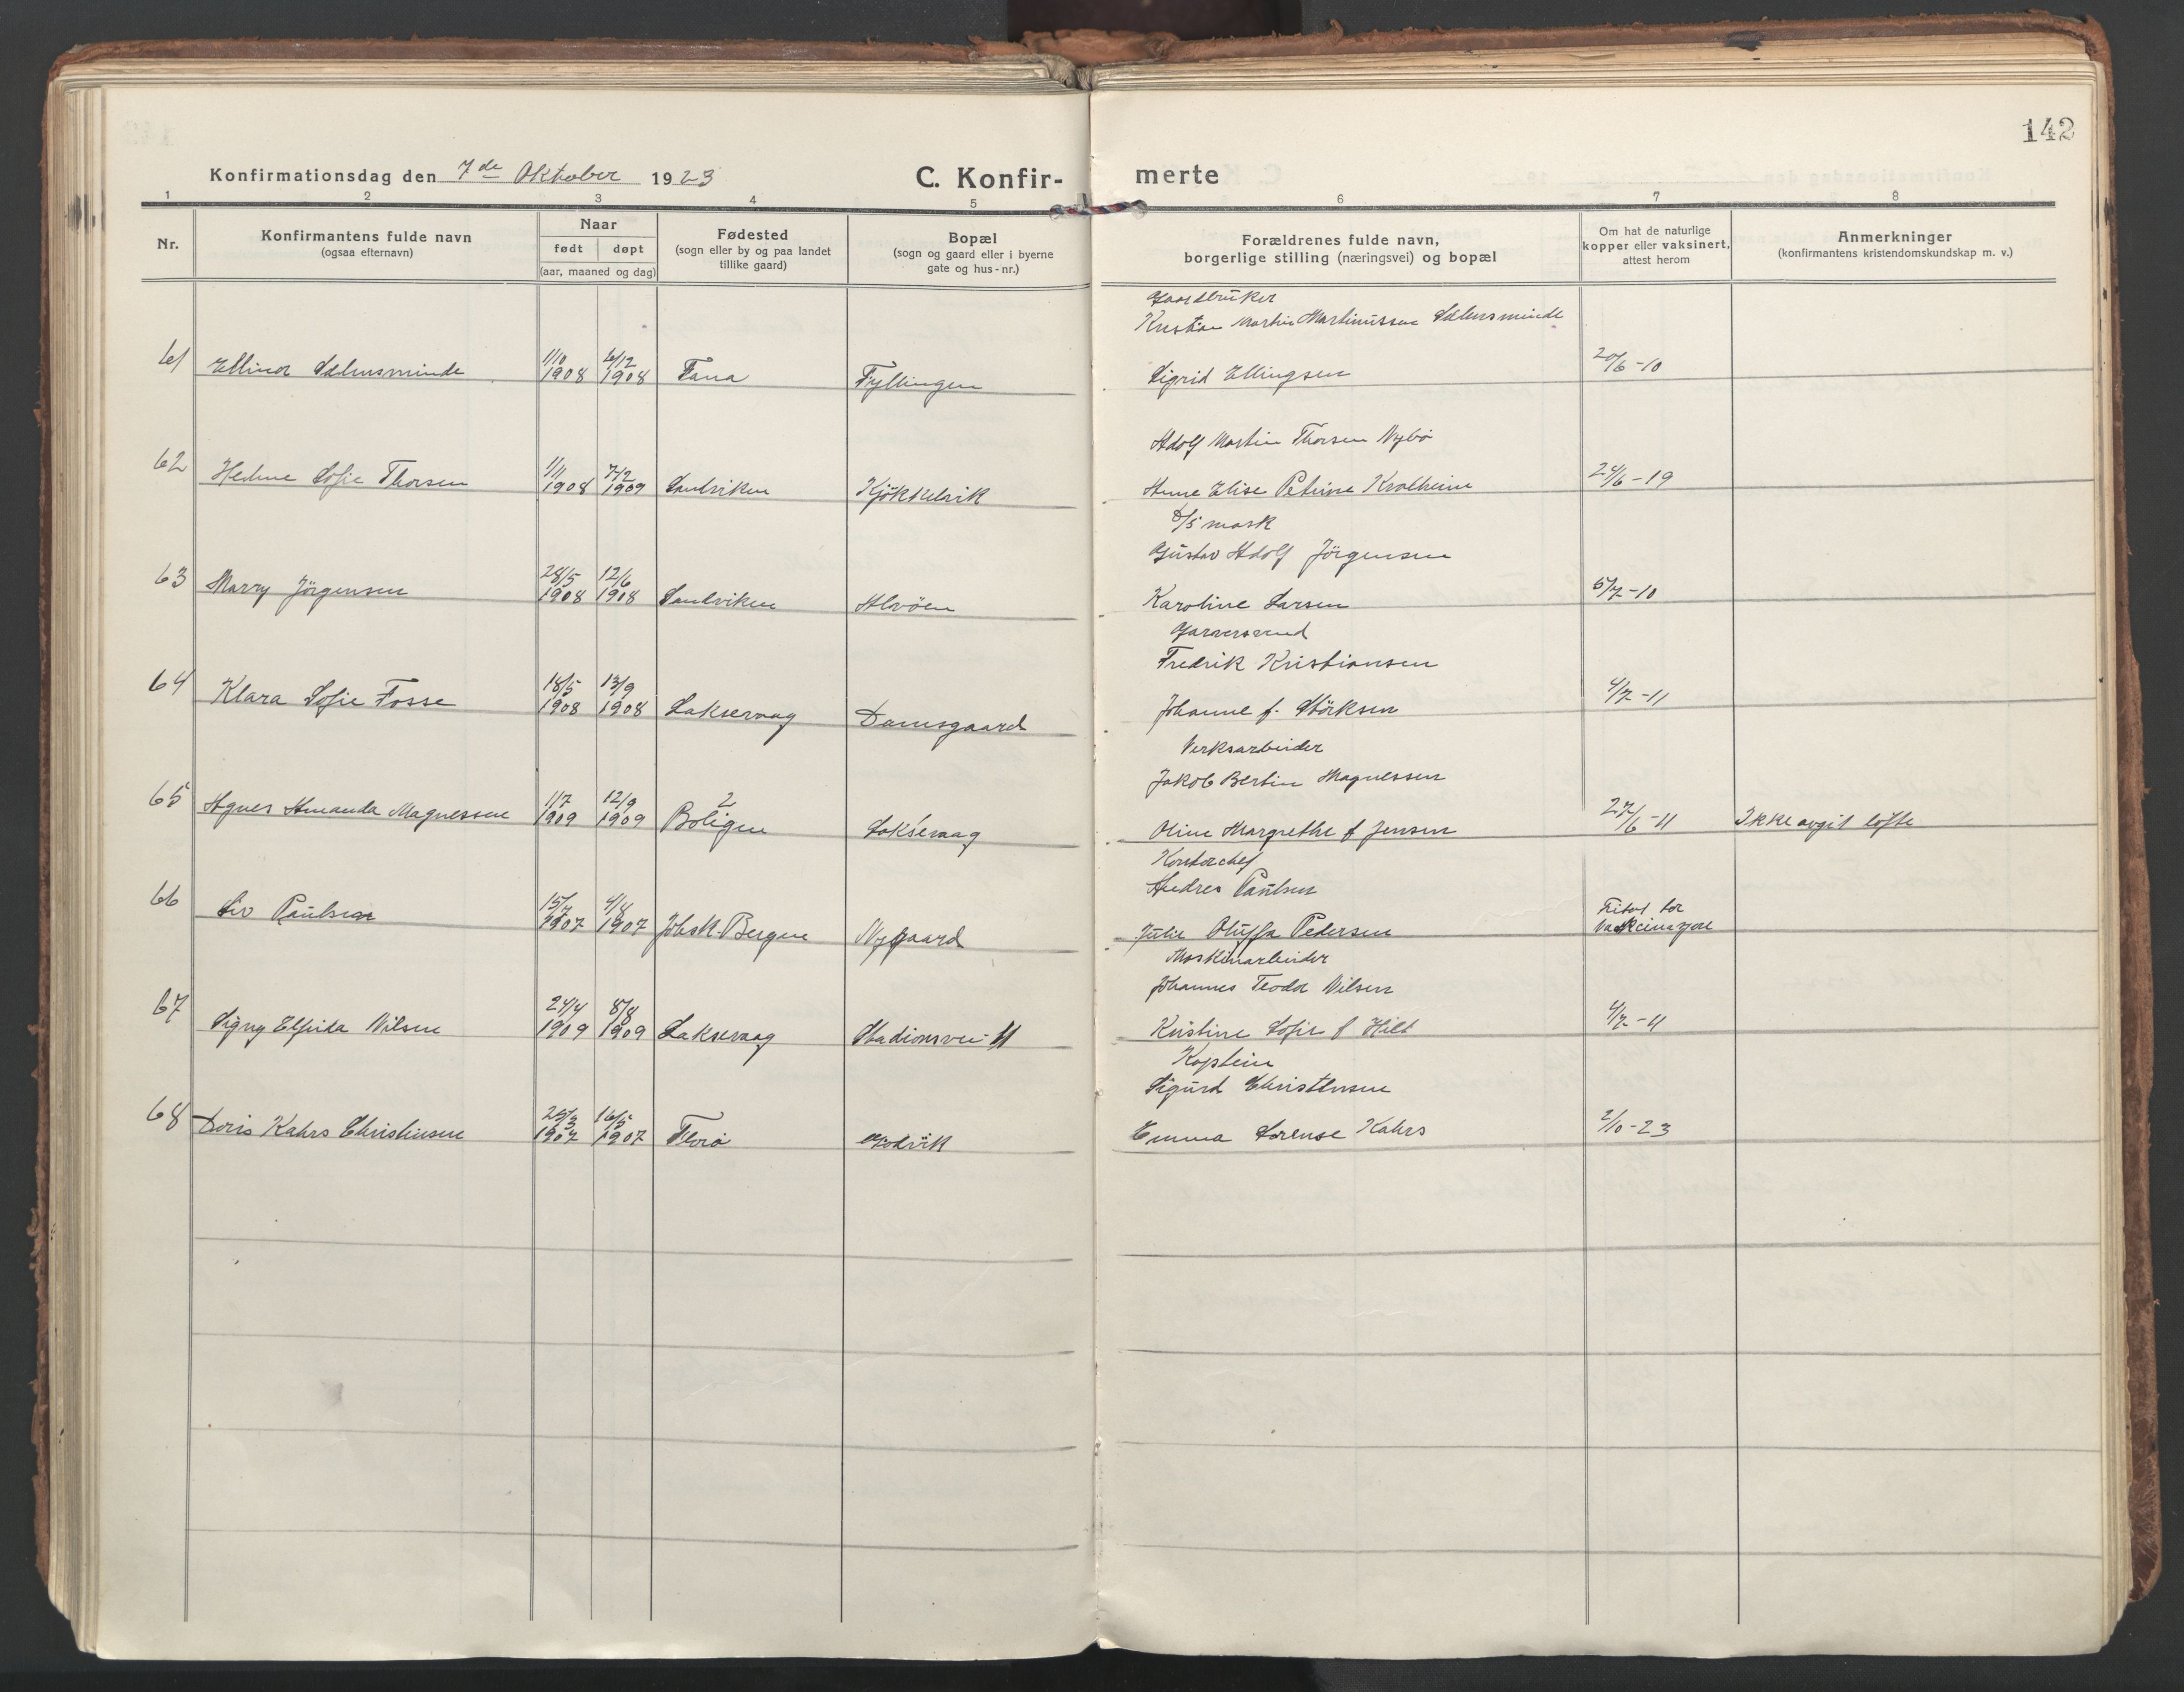 142
Konfirmationsdag den 7de Oktober 1923
C. Konfir-
merte
1 2 3 4 5 6 7 8
Nr.
Konfirmantens fulde navn
(ogsaa efternavn)
Naar
født døpt
(aar, maaned og dag)
Fødested
(sogn eller by og paa landet
tillike gaard)
Bopæl
(sogn og gaard eller i byerne
gate og hus-nr.)
Forældrenes fulde navn,
borgerlige stilling (næringsvei) og bopæl
Om hat de naturlige
kopper eller vaksinert,
attest herom
Anmerkninger
(konfirmantens kristendomskundskap m. v.)
Gaardbruker
Kristian Martin Martinussen Sælensminde
61 Ellinor Sælensminde 1/10 1908 6/12 1908 Fana Fyllingen
Sigrid Ellingsen 20/6-10
Adolf Martin Thorsen Nybø
62 Sofie Thorsen 1/11 1908 7/2 1909 Sandviken Kjökkelvik
Anne Elise Petrine 24/6-19
D/S mask
Gustav Adolf Jörgensen
63 Marry Jörgensen 28/5 1908 12/6 1908 Sandviken Alvöen
Karoline Larsen 5/7-10
Garversvend
Fredrik Kristiansen
64 Klara Sofie Fosse 18/5 1908 13/9 1908 Laksevaag Damsgaard
Johanne f. Störksen 4/7-11
Verksarbeider
Jakob Bertin Magnessen
65 Agnes Amanda Magnessen 1/7 1909 12/9 1909 2 Boligen Laksevaag
Oline Margrethe f Jensen 27/6-11 Ikke avgit löfte
Kontorchef
Andres Paulsen
66 Liv Paulsen 15/7 1907 4/8 1907 JohsK. Bergen Nygaard
Julie Oluffa Pedersen Fritat for
vakcinasjon
Maskinarbeider
Johannes Teodor Nilsen
67 Signy Elfrida Nilsen 24/4 1909 8/8 1909 Laksevaag Stadionsvei 11
Kristine Sofie f Hilt 4/7-11
Kaptein
Sigurd Christensen
68 Doris Kahrs Christensen 25/3 1907 16/5 1907 Florø Godvik
Emma Lorense Kahrs 2/10-23